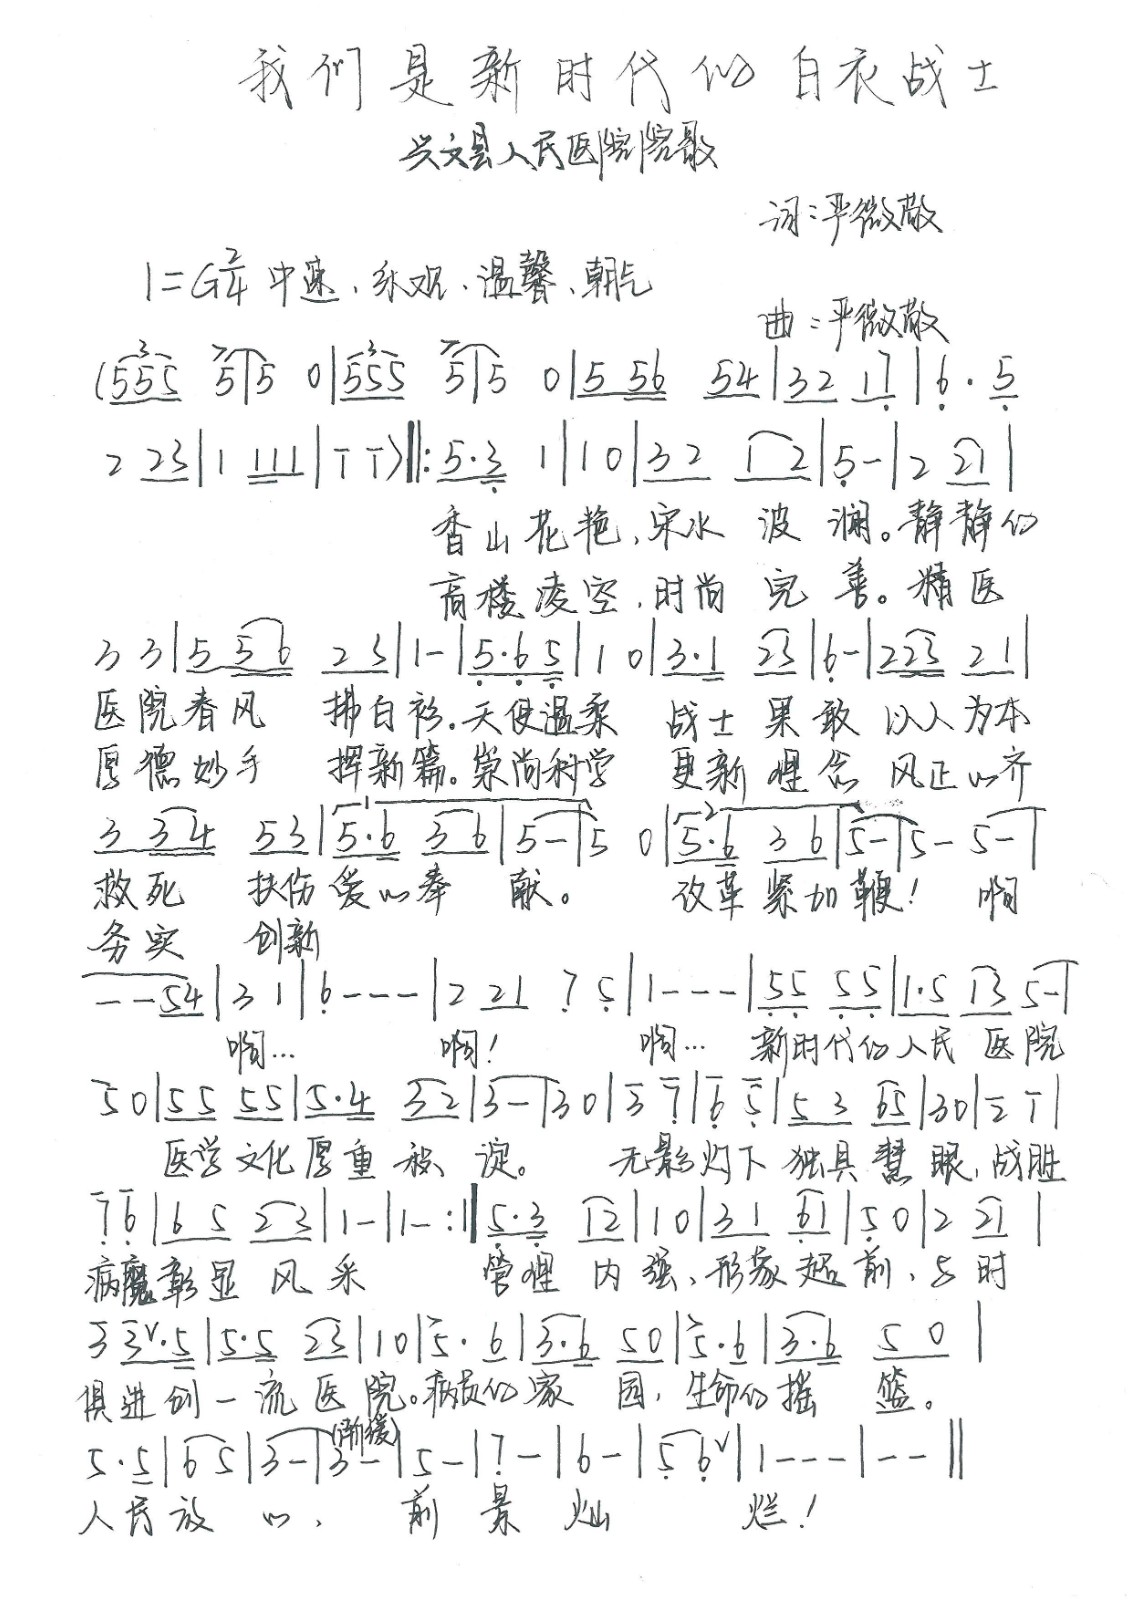 我们是新时代的白衣战士
兴文县人民医院院歌
词：严微敬
1=G 2/4 中速、乐观、温馨、朝气
曲：严微敬
(555 5|5 0|555 5|5 0|5 56 54|32 17|6· 5
2 23|1 111|1 1)‖:5·3 1|10|32 12|5-|2 21|
香山花艳，宋水 波 澜。静静的
高楼凌空，时尚 完 善。精医
3 3|5 56 23|1-|5·65|1 0|3·1 23|6-|223 21|
医院春风 拂白衫。天使温柔 战士果敢 以人为本
厚德妙手 挥新篇。崇尚科学 更新理念 风正心齐
3 34 53|5·6 36|5-|5 0|5·6 36|5-|5- 5-|
救死 扶伤爱心奉 献。 改革紧加鞭！ 啊
务实 创新
--54|3 1|6---|2 21 7 5|1---|55 55|1·5 13 5-|
啊… 啊！ 啊… 新时代的人民 医院
50|55 55|5·4 32|3-|30|3 7|6 5|53 65|30|2 1|
医学文化厚重 淀。 无影灯下 独具慧眼，战胜
7 6|65 23|1-|1-:‖5·3 12|10|31 61|50|2 21|
病魔彰显 风采 管理 内强、形象超前，与时
3 3·5|5·5 23|10|5· 6|3·6 50|5·6|3·6 50|
俱进创一流医院。病员的家 园，生命的摇 篮。
(渐缓)
5·5|65|3-|3-|5-|7-|6-|5 6|1---|--‖
人民放 心， 前 景 灿 烂！